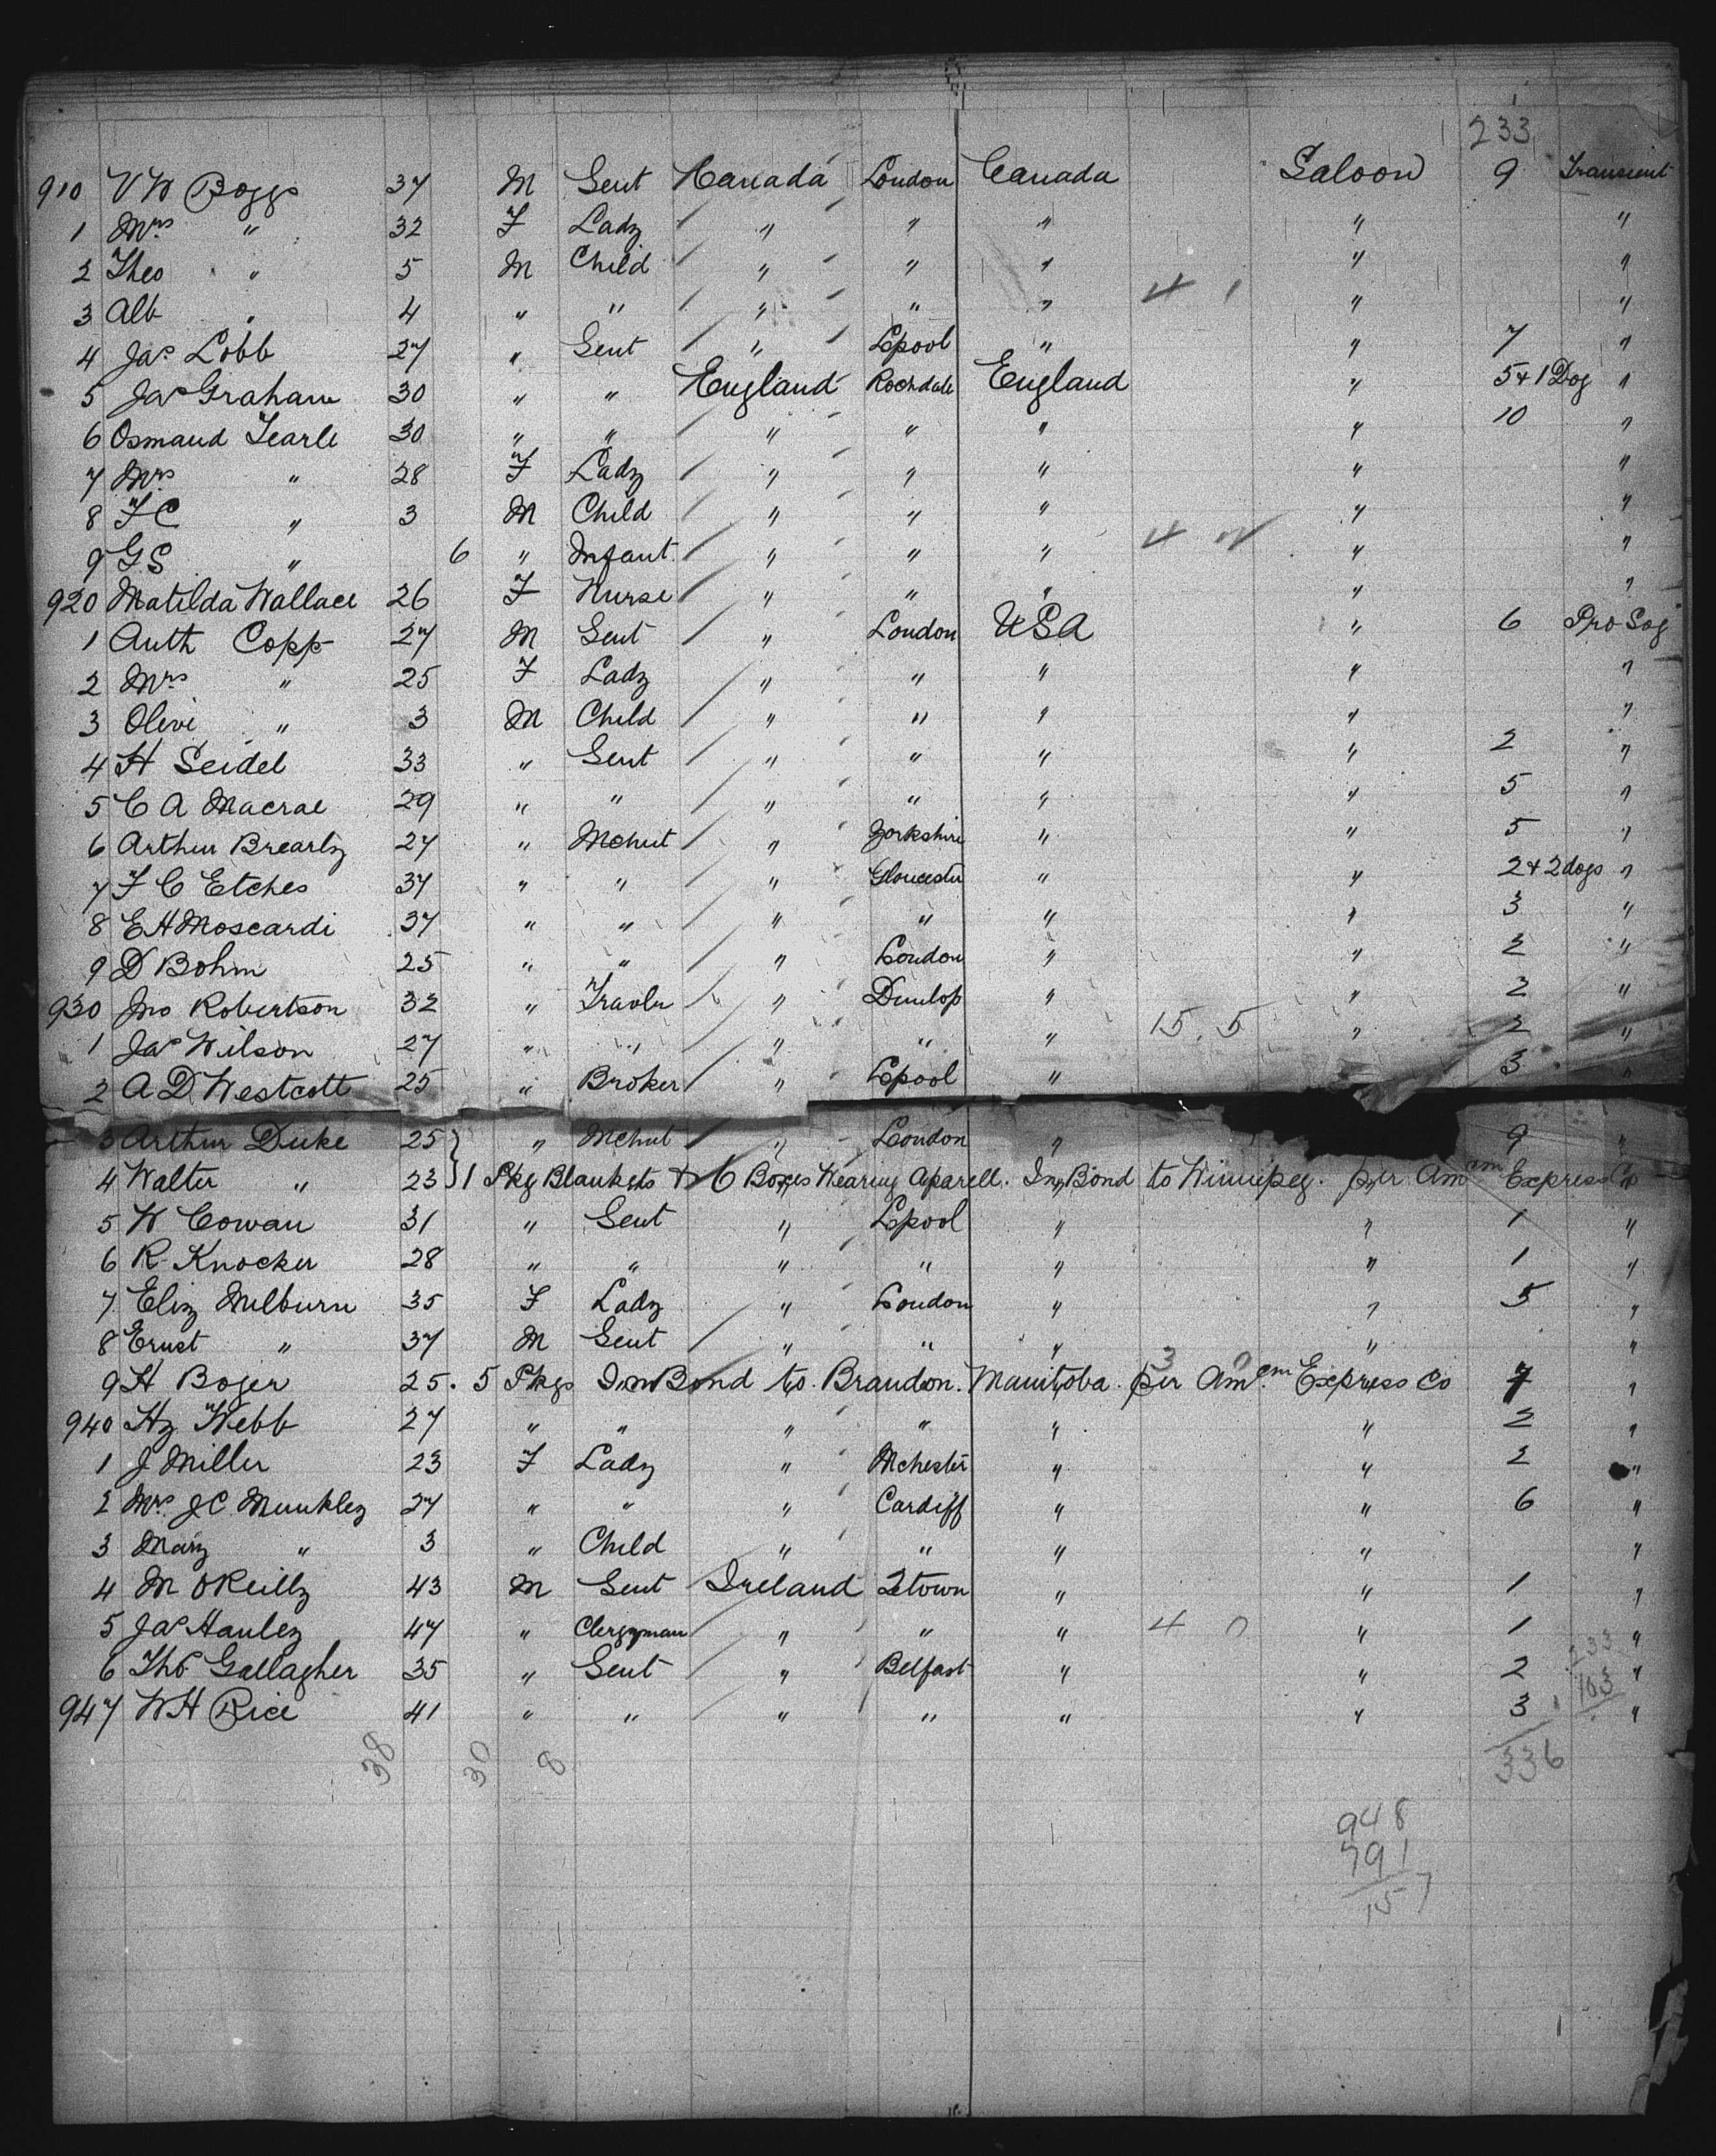 233
910 V W Boggs 37 M Gent Canada London Canada Saloon 9 Transient
1 Mrs " 32 F Lady " " " " "
2 Theo " 5 M Child " " " " "
3 Alb " 4 " " " " " 4 1 " "
4 Jas Lobb 27 " Gent " Lpool " " 7 "
5 Jas Graham 30 " " England Rochdale England " 5 + 1 Dog "
6 Osmand Tearle 30 " " " " " " 10 "
7 Mrs " 28 F Lady " " " " "
8 F C " 3 M Child " " " " "
9 G S " 6 " Infant " " " 4 " "
920 Matilda Wallace 26 F Nurse " " " " "
1 Auth Copp 27 M Gent " London USA " 6 Pro Soj
2 Mrs " 25 F Lady " " " " "
3 Olive " 3 M Child " " " " "
4 H Seidel 33 " Gent " " " " 2 "
5 C A Macrae 29 " " " " " " 5 "
6 Arthur Brearly 27 " Mchnt " Yorkshire " " 5 "
7 F C Etches 37 " " " Gloucester " " 2 + 2 dogs "
8 E H Moscardi 37 " " " " " " 3 "
9 D Bohm 25 " " " London " " 2 "
930 Jno Robertson 32 " Travlr " Dunlop " " 2 "
1 Jas Wilson 27 " " " " " 15.5 " 2 "
2 A D Westcott 25 " Broker " Lpool " 3 "
3 Arthur Duke 25 " Mchnt " London " 9 "
4 Walter " 23 1 Pkg Blankets & 6 Boxes Wearing Aparell. In Bond to Winnipeg. per Amcan Express Co
5 W Cowan 31 " Gent " Lpool " " 1 "
6 R Knocker 28 " " " " " " 1 "
7 Eliz Milburn 35 F Lady " London " " 5 "
8 Ernst " 37 M Gent " " " " "
9 H Boger 25. 5 Pkgs In Bond to Brandon. Manitoba per Amcn Express Co 7 "
3 0
940 Hy Webb 27 " " " " " " 2 "
1 J Miller 23 F Lady " Mchester " " 2 "
2 Mrs J C Munkley 27 " " " Cardiff " " 6 "
3 Mary " 3 " Child " " " " "
4 M OReilly 43 M Gent Ireland Qtown " " 1 "
5 Jas Hanley 47 " Clergyman " " " 4 0 " 1 "
6 Thos Gallagher 35 " Gent " Belfast " " 2 "
947 W H Rice 41 " " " " " " 3 "
233
103
336
38 30 8
948
791
157